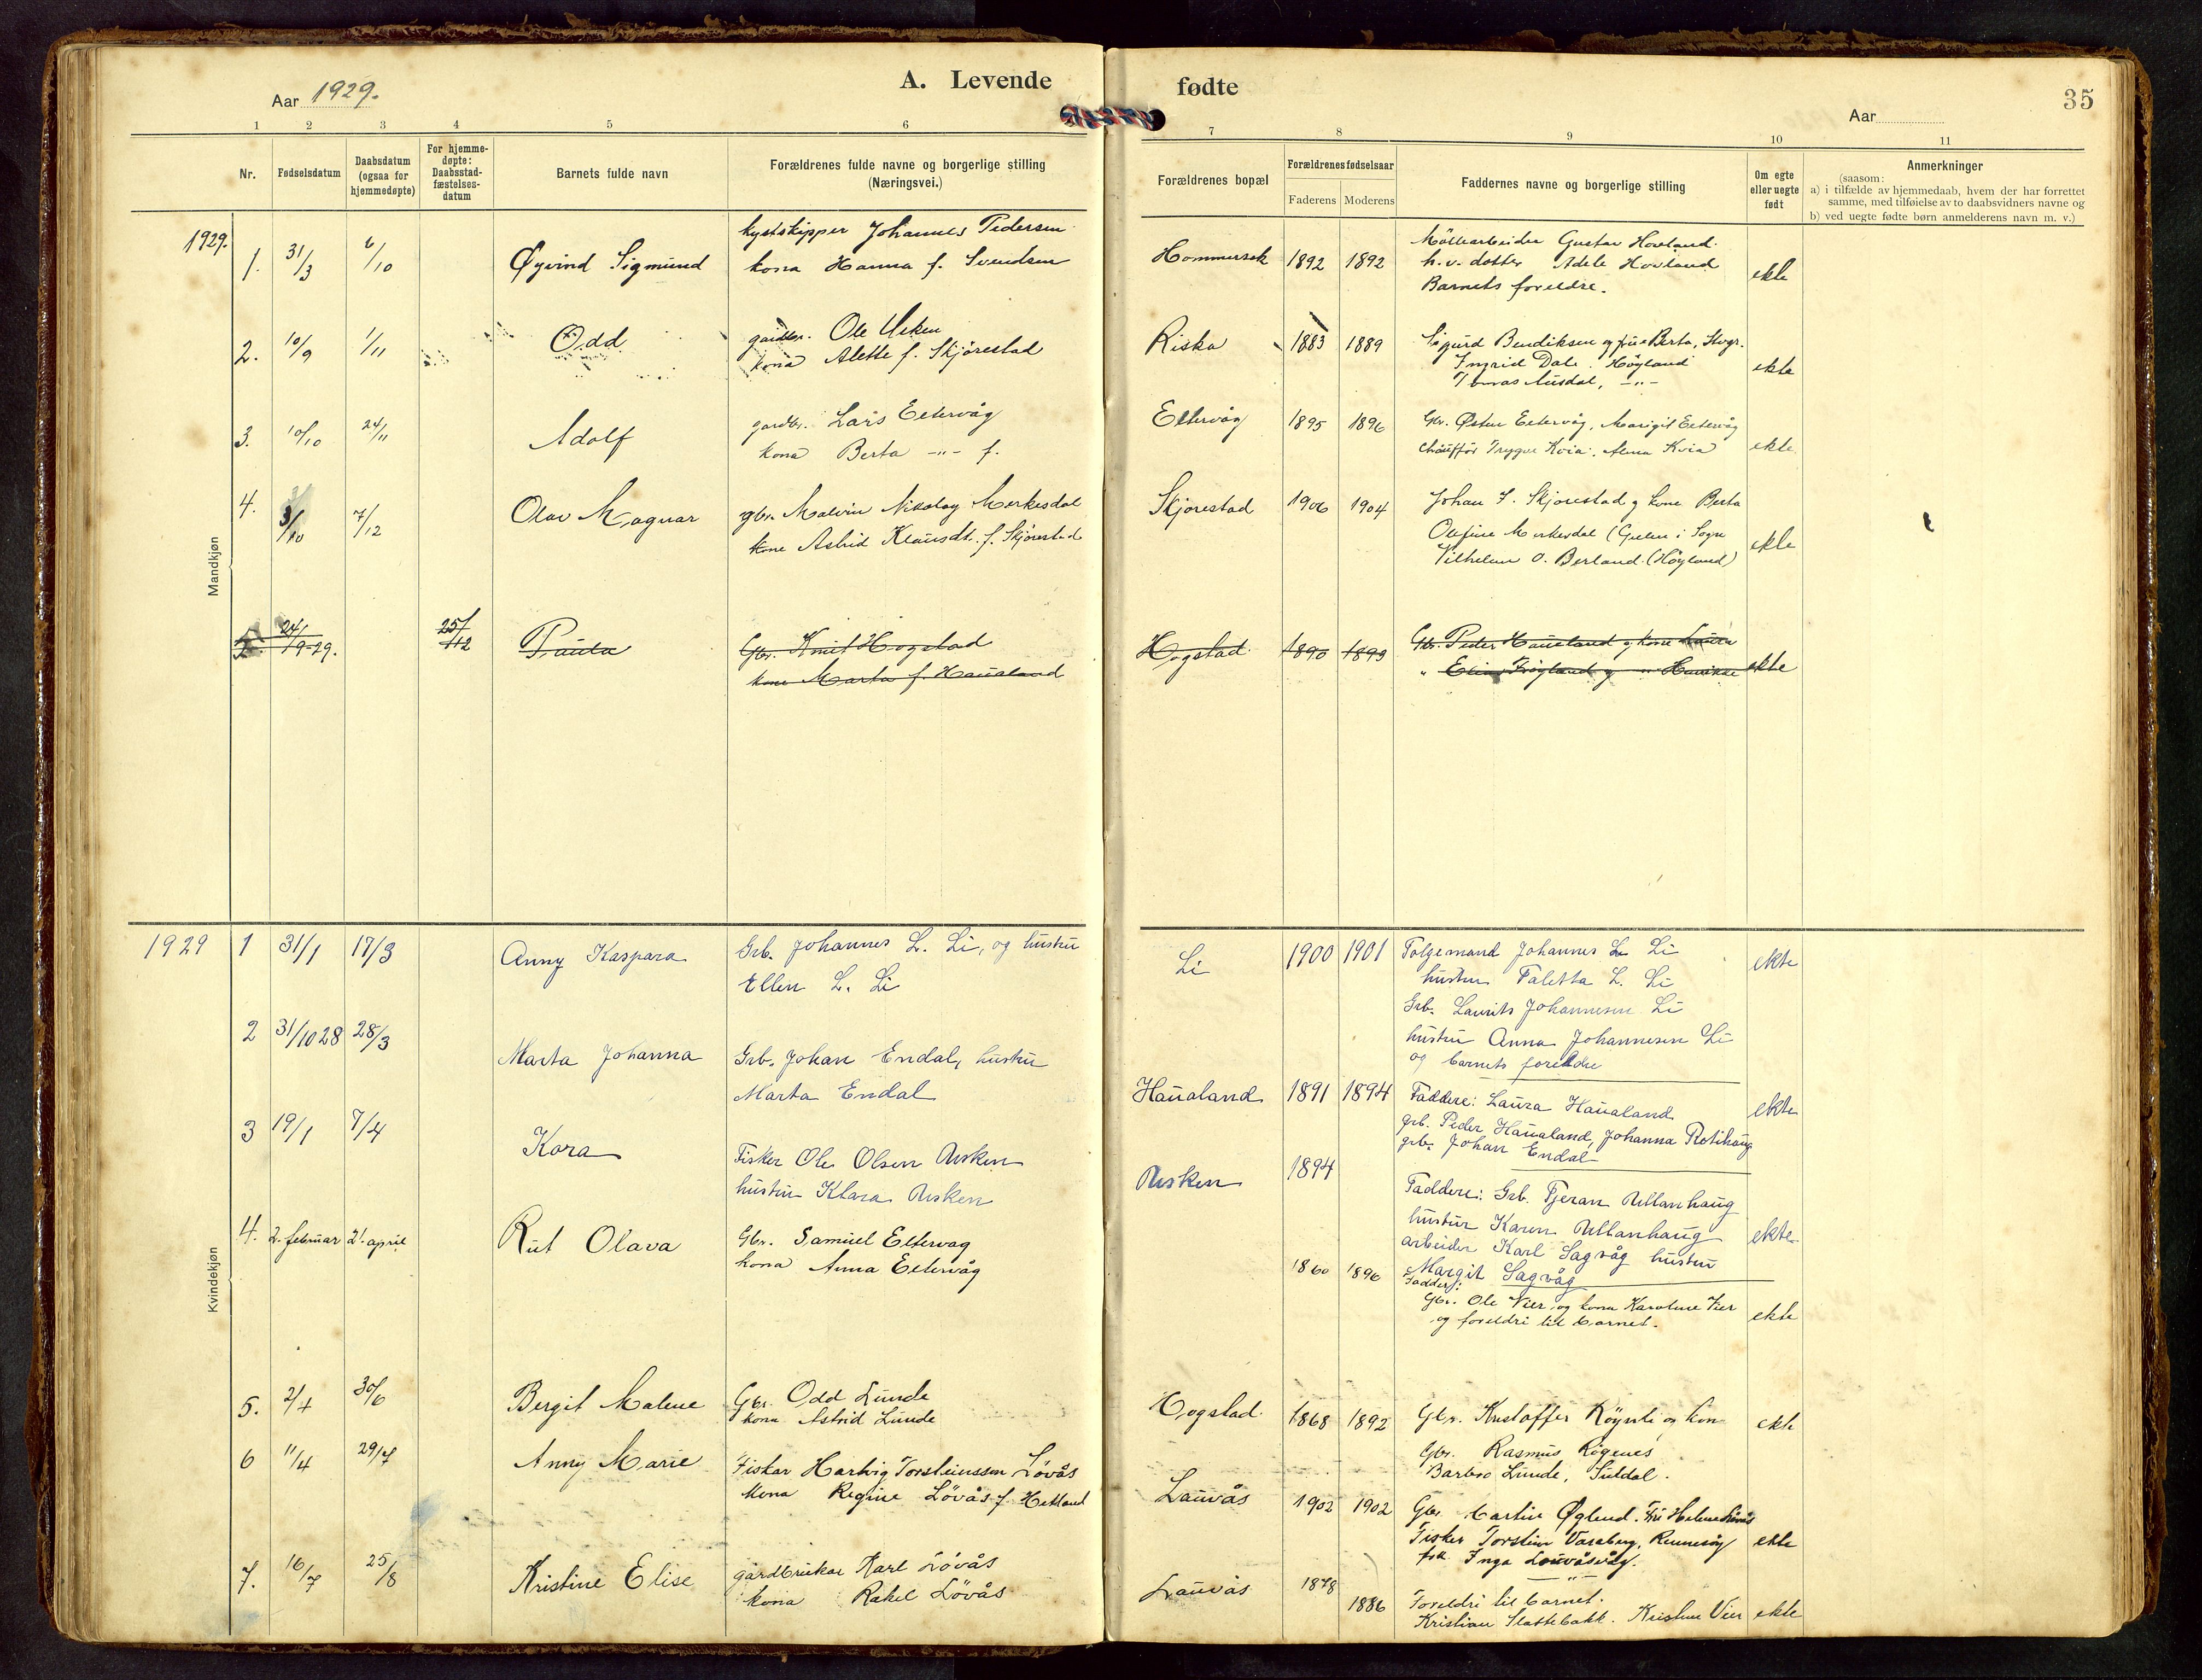 Aar 1929.
A. Levende
1 2 3 4 5 6
Nr.
Fødselsdatum
Daabsdatum
(ogsaa for
hjemmedøpte)
For hjemme-
døpte:
Daabsstad-
fæstelses-
datum
Barnets fulde navn
Forældrenes fulde navne og borgerlige stilling
(Næringsvei.)
Mandkjøn
1929.
1. 31/3 6/10 Øyvind Sigmund
kystskipper Johannes Pedersen
kona Hanna f. Svendsen
2. 10/9 1/11 Odd
gardbr. Ole Usken
kona Alette f. Skjørestad
3. 10/10 24/11 Adolf
gardbr. Lars Eltervåg
kona Berta -"- f.
4. 3/10 7/12 Olav Magnar
gbr. Malvin Nikolay Merkesdal
kone Astrid Klausdt. f. Skjørestad
5. 24/9-29. 25/12 Paula
Gbr. Knut Hogstad
kone Marta f. Haualand
Kvindekjøn
1929
1 31/1 17/3 Anny Kaspara
Grb. Johannes L. Li, og hustru
Ellen L. Li
2 31/10 28 28/3 Marta Johanna
Grb. Johan Endal, hustru
Marta Endal
3 19/1 7/4 Kora
Fisker Ole Olsen Usken
hustru Klara Usken
4. 2. februar 21. april Rut Olava
Gbr. Samuel Eltervag
kona Anna Eltervåg
5. 2/4 30/6 Bergit Malene
Gbr. Odd Lunde
kona Astrid Lunde
6 11/4 29/7 Anny Marie
Fiskar Hartvig Torsteinssen Lövås
Kona Regine Lövås f. Hetland
7. 16/7 25/8 Kristine Elise
gardbrukar Karl Lövås
kona Rakel Lövås
fødte
Aar
35
7 8 9 10 11
Forældrenes bopæl
Forældrenes fødselsaar
Faderens Moderens
Faddernes navne og borgerlige stilling
Om egte
eller uegte
født
Anmerkninger
(saasom:
a) i tilfælde av hjemmedaab, hvem der har forrettet
samme, med tilføielse av to daabsvidners navne og
b) ved uegte fødte børn anmelderens navn m. v.)
Hommersåk 1892 1892
Møllearbeider Gustav Hovland.
h.v. dotter Adele Hovland
Barnets foreldre.
ekte
Riska 1883 1889
Sigurd Bendiksen og frue Berta, Stvgr.
Ingrid Dale. Høyland
Tomas Ausdal, -"-
ekte
Eltervåg 1895 1896
Gbr. Østen Eltervåg, Margit Eltervåg
chauffør Trygve Kvia. Alma Kvia
ekte
Skjørestad 1906 1904
Johan I. Skjørestad og kone Berta
Olefine Merkesdal (Gulen i Sogn
Vilhelm O. Berland. (Høyland)
ekte
Hogstad 1890 1893
Gbr. Peder Haualand og kone Laura
" Elias Frøyland og "
ekte
Li 1900 1901
Folgemand Johannes L. Li
hustru Taletta L. Li
Grb. Laurits Johannesen Li
hustru Anna Johannesen Li
og barnets foreldre
ekte
Haualand 1891 1894
Faddere: Laura Haualand
grb. Peder Haualand, Johanna Rotihaug
grb. Johan Endal
ekte
Usken 1894
Faddere: Grb. Tjeran Ullanhaug
hustru Karen Ullanhaug
arbeider Karl Sagvåg hustru
Margit Sagvåg
ekte
1860 1896
Fadder:
Gbr. Ole Vier og kona Karoline Vier
og foreldri til barnet.
ekte
Hogstad 1868 1892
Gbr. Kristoffer og kona
Gbr. Rasmus Røgenes
Barbro Lunde, Suldal.
ekte
Lauvås 1902 1902
Gbr. Martin Øglend. Fru Helene Lövås
Fisker Torstein Varaberg, Rennesøy
frk. Inga Lauvåsvåg.
ekte
Lauvås 1878 1886
-"-
Foreldri til barnet.
Kristian Slattebakk. Kristine Vier
ekte